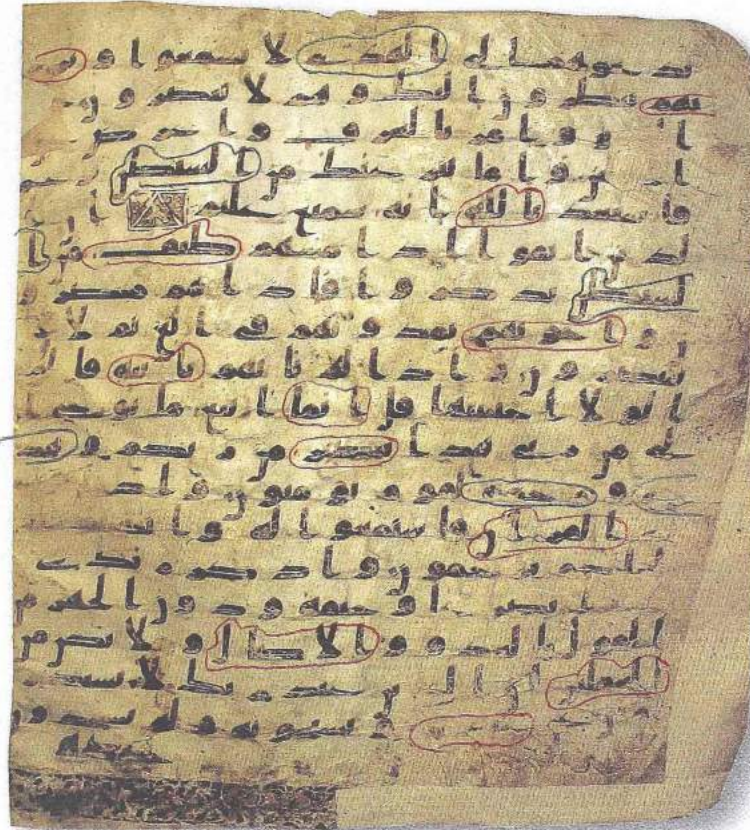 تدعوهم الى الهدى لا يسمعوا و تر
يهم ينظرون اليك وهم لا يبصرون خذ
ا لعفو وامر بالعرف واعرض عن
ا لجهلين واما ينزغنك من الشيطن نزغ
فاستعذ بالله انه سميع عليم ا ن ا
لذين اتقوا اذا مسهم طيف من ا
لشيطن تذكروا فاذا هم مبصر و
ن واخونهم يمدونهم في الغي ثم لا
يقصرون واذا لم تاتهم باية قا
لوا لولا اجتبيتها قل انما اتبع ما يوحى ا
لي من ربي هذا بصئر من ربكم وهد
ى ورحمة لقوم يومنون واذ
ا قرى القران فاستمعوا له وانصتوا
لعلكم ترحمون واذكر ربك
في نفسك تضرعا وخيفة ودون الجهر م
ن القول بالغدو والاصال ولا تكن من
الغفلين ان الذين عند ربك لا يستكبر
ون عن عبادته ويسبحونه وله يسجدون